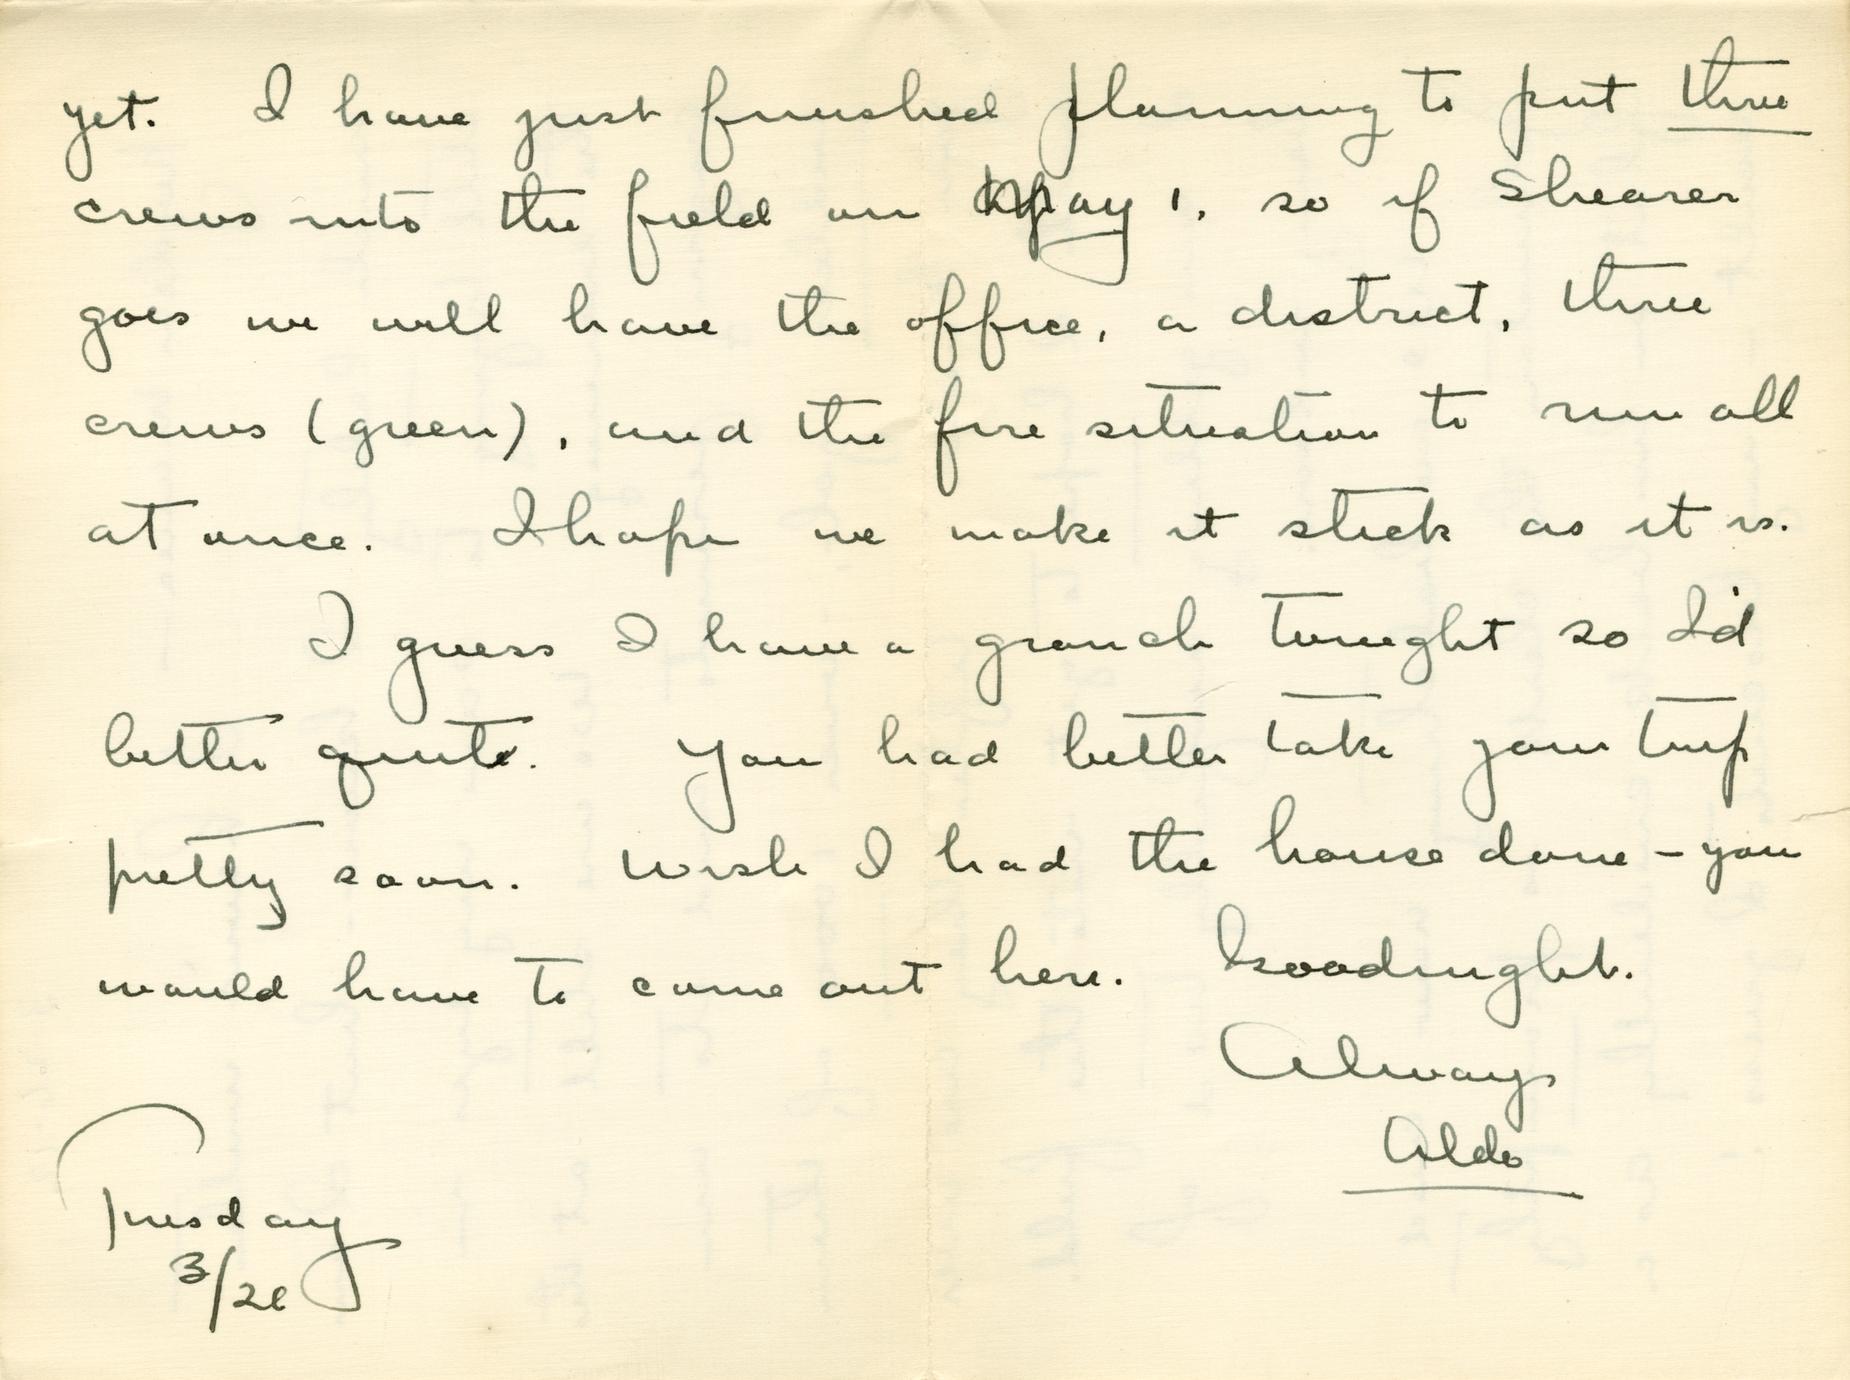 yet. I have just finished planning to put three
crews into the field on May 1, so if Shearer
goes we will have the office, a district, three
crews (green), and the fire situation to run all
at once. I hope we make it stick as it is.
I guess I have a grouch tonight so I'd
better quite. You had better take your trip
pretty soon. Wish I had the house done – you
would have to come out here. Goodnight.
Always
Aldo
Tuesday